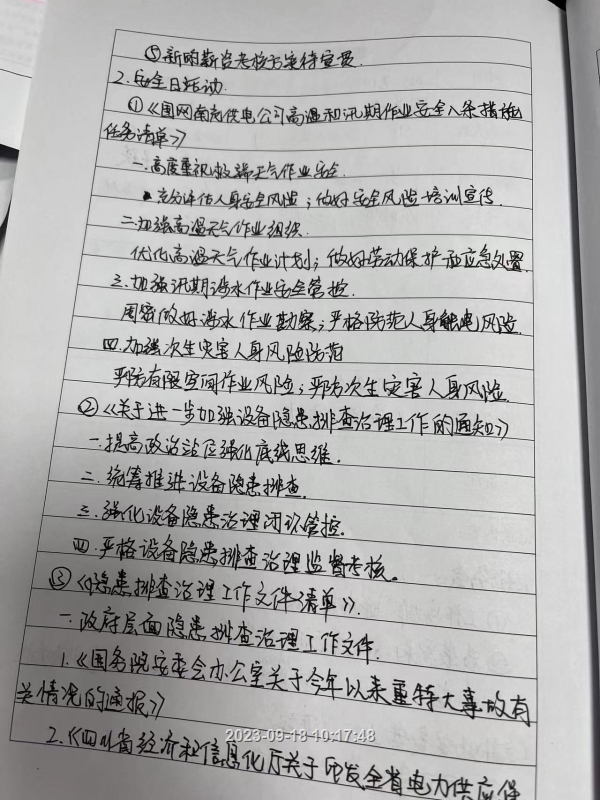 ⑤新的薪资考核方案待宣贯.
2.安全日活动.
①《国网南充供电公司高温和汛期作业安全八条措施
任务清单》
一.高度重视极端天气作业安全.
充分评估人身安全风险；做好安全风险培训宣传.
二.加强高温天气作业组织.
优化高温天气作业计划；做好劳动保护和应急处置.
三.加强汛期涉水作业安全管控.
周密做好涉水作业勘察；严格防范人身触电风险.
四.加强次生灾害人身风险防范
严防有限空间作业风险；严防次生灾害人身风险.
②《关于进一步加强设备隐患排查治理工作的通知》
一.提高政治站位强化底线思维.
二.统筹推进设备隐患排查.
三.强化设备隐患治理闭环管控.
四.严格设备隐患排查治理监督考核。
③《隐患排查治理工作文件清单》.
一.政府层面隐患排查治理工作文件.
1.《国务院安委会办公室关于今年以来重特大事故有
关情况的通报》
2023-09-18 10:17:48
2.《四川省经济和信息化厅关于印发全省电力供应保